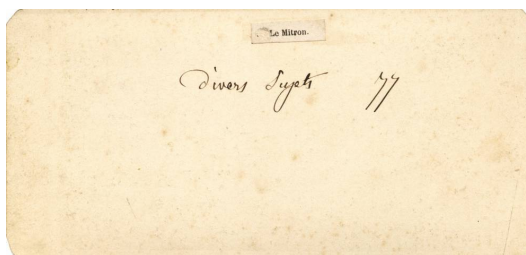 Le Mitron.
Divers Sujets 77